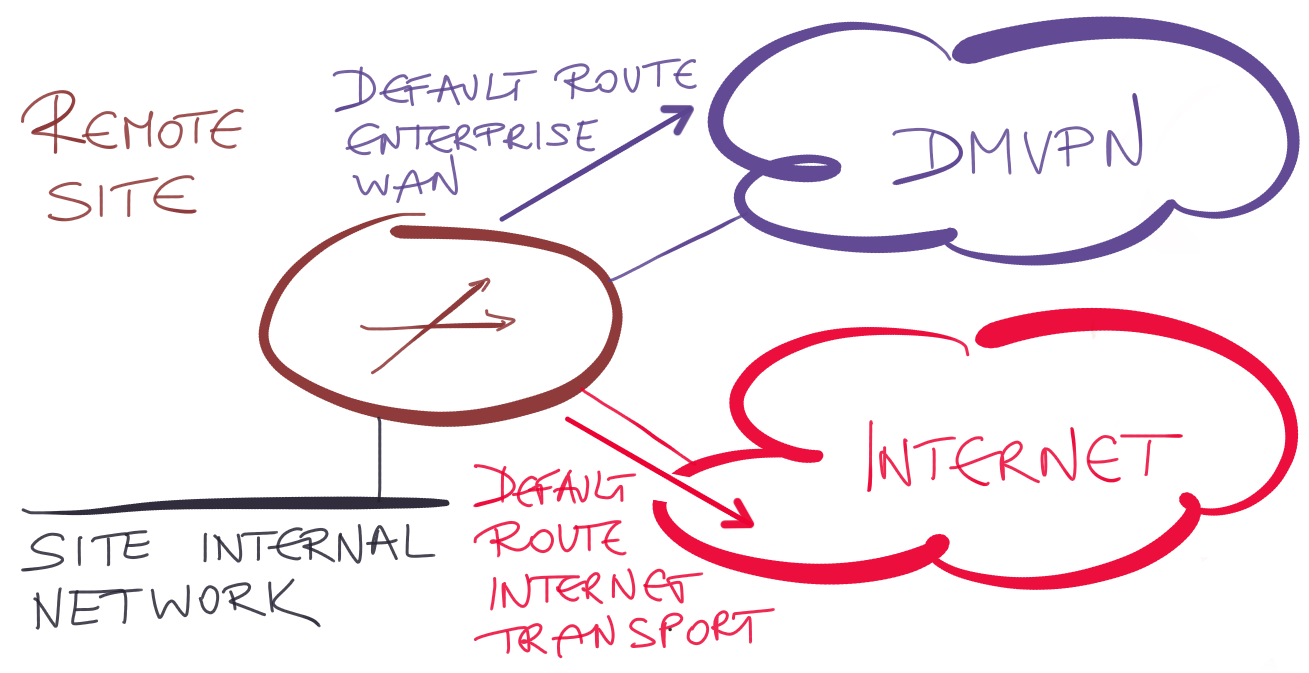 REMOTE
SITE
DEFAULT ROUTE
ENTERPRISE
WAN
DMVPN
INTERNET
DEFAULT
ROUTE
INTERNET
TRANSPORT
SITE INTERNAL
NETWORK